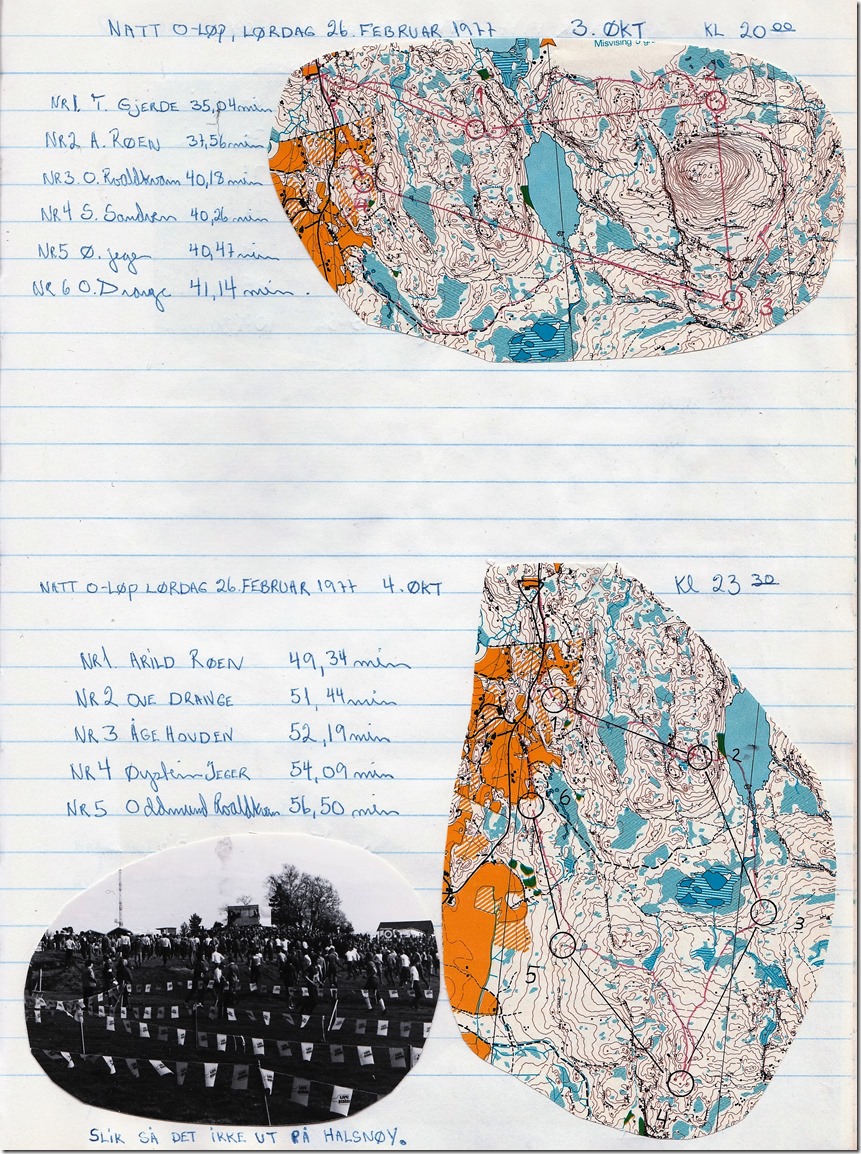 NATT O-LØP, LØRDAG 26. FEBRUAR 1977 3. ØKT KL 20 00
Misvising
NR 1. T. GJERDE 35,04 min
NR 2 A. RØEN 37,56 min
NR 3. O. Roaldkvam 40,18 min
NR 4 S. Sandven 40,26 min
NR 5 Ø. Jeger 40,47 min
NR 6 O. Drange 41,14 min.
1
2
3
4
NATT O-LØP LØRDAG 26. FEBRUAR 1977 4. ØKT Kl 23 30
NR 1. ARILD RØEN 49,34 min
NR 2 OVE DRANGE 51,44 min
NR 3 ÅGE HOVDEN 52,19 min
NR 4 Øystein JEGER 54,09 min
NR 5 Oddmund Roaldkvam 56,50 min
1
2
6
3
5
4
SLIK SÅ DET IKKE UT PÅ HALSNØY.